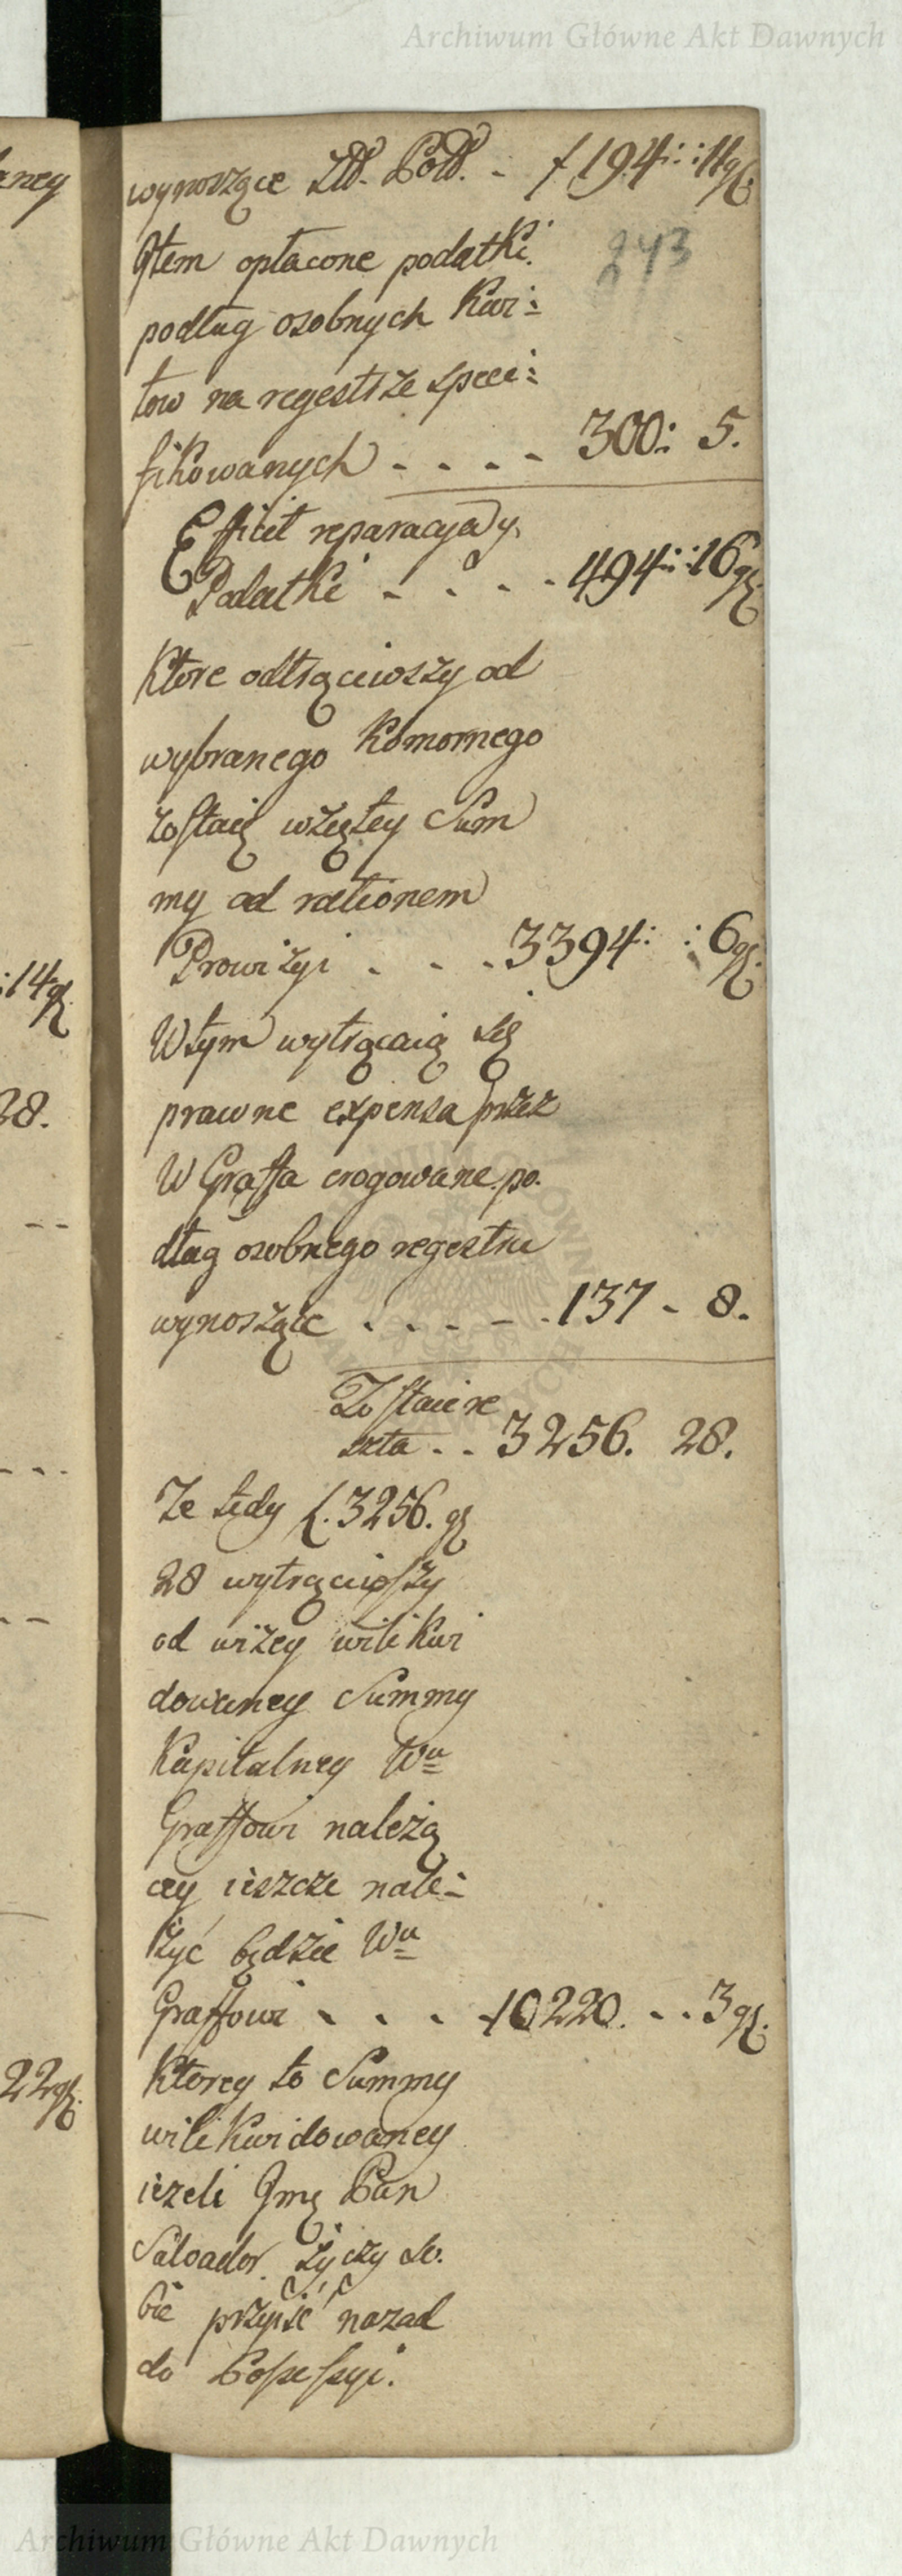 Archiwum Główne Akt Dawnych
wynoszące Złł. Poll. - f 194:: 11 gr.
243
Item opłacone podatki
podług osobnych Kwi:
tow na regestrze speci:
fikowanych - - - - 300: 5.
Efficit reparacya y
Podatki - - - - 494:: 16 gr.
Ktore odtrąciwszy od
wybranego Komornego
zostaią wzęłey Sum
my ad rationem
Prowizyi - - - 3394: : 6 gr.
W tym wytrącaią się
prawne expensa przez
W Graffa erogowane po.
dług osobnego regestru
wynoszące - - - - - 137 - 8.
Zostaie re
szta - - 3256. 28.
Ze tedy f. 3256. gr
28 wytrąciwszy
od wizey wilikwi
dowaney Summy
Kapitalney Wu
Graffowi należą
cey ieszcze nale:
żyć będzie Wu
Graffowi - - - - 10220. - - 3 gr.
Ktorey to Summy
wilikwidowaney
ieżeli Jmę Pan
Salvador życzy so.
bie przyiść nazad
do Possessyi.
aney
:14 gr
28.
22 gr.
Archiwum Główne Akt Dawnych